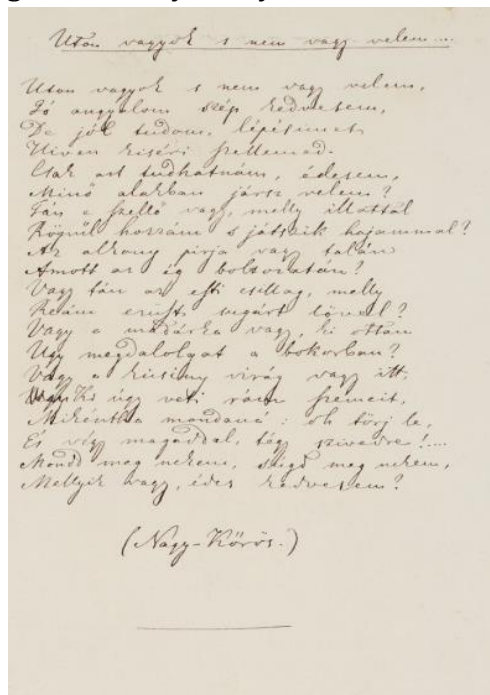 Uton vagyok s nem vagy velem....
Uton vagyok s nem vagy velem,
Jó angyalom szép kedvesem,
De jól tudom, lépésimet
Hiven kiséri szellemed.
Csak azt tudhatnám, édesem,
Minő alakban jársz velem?
Tán a szellő vagy, melly illattal
Röpűl hozzám s játszik hajammal?
Az alkony pirja vagy talán
Amott az ég boltozatán?
Vagy tán az esti csillag, melly
Reám ezüst sugárt lövel?
Vagy a madárka vagy, ki ottan
Ugy megdalolgat a bokorban?
Vagy a kicsiny virág vagy itt,
Ki úgy veti rám szemeit,
Mikéntha mondaná: oh törj le,
És végy magaddal, tégy szivedre!....
Mondd meg nekem, súgd meg nekem,
Mellyik vagy, édes kedvesem?
(Nagy-Kőrös.)